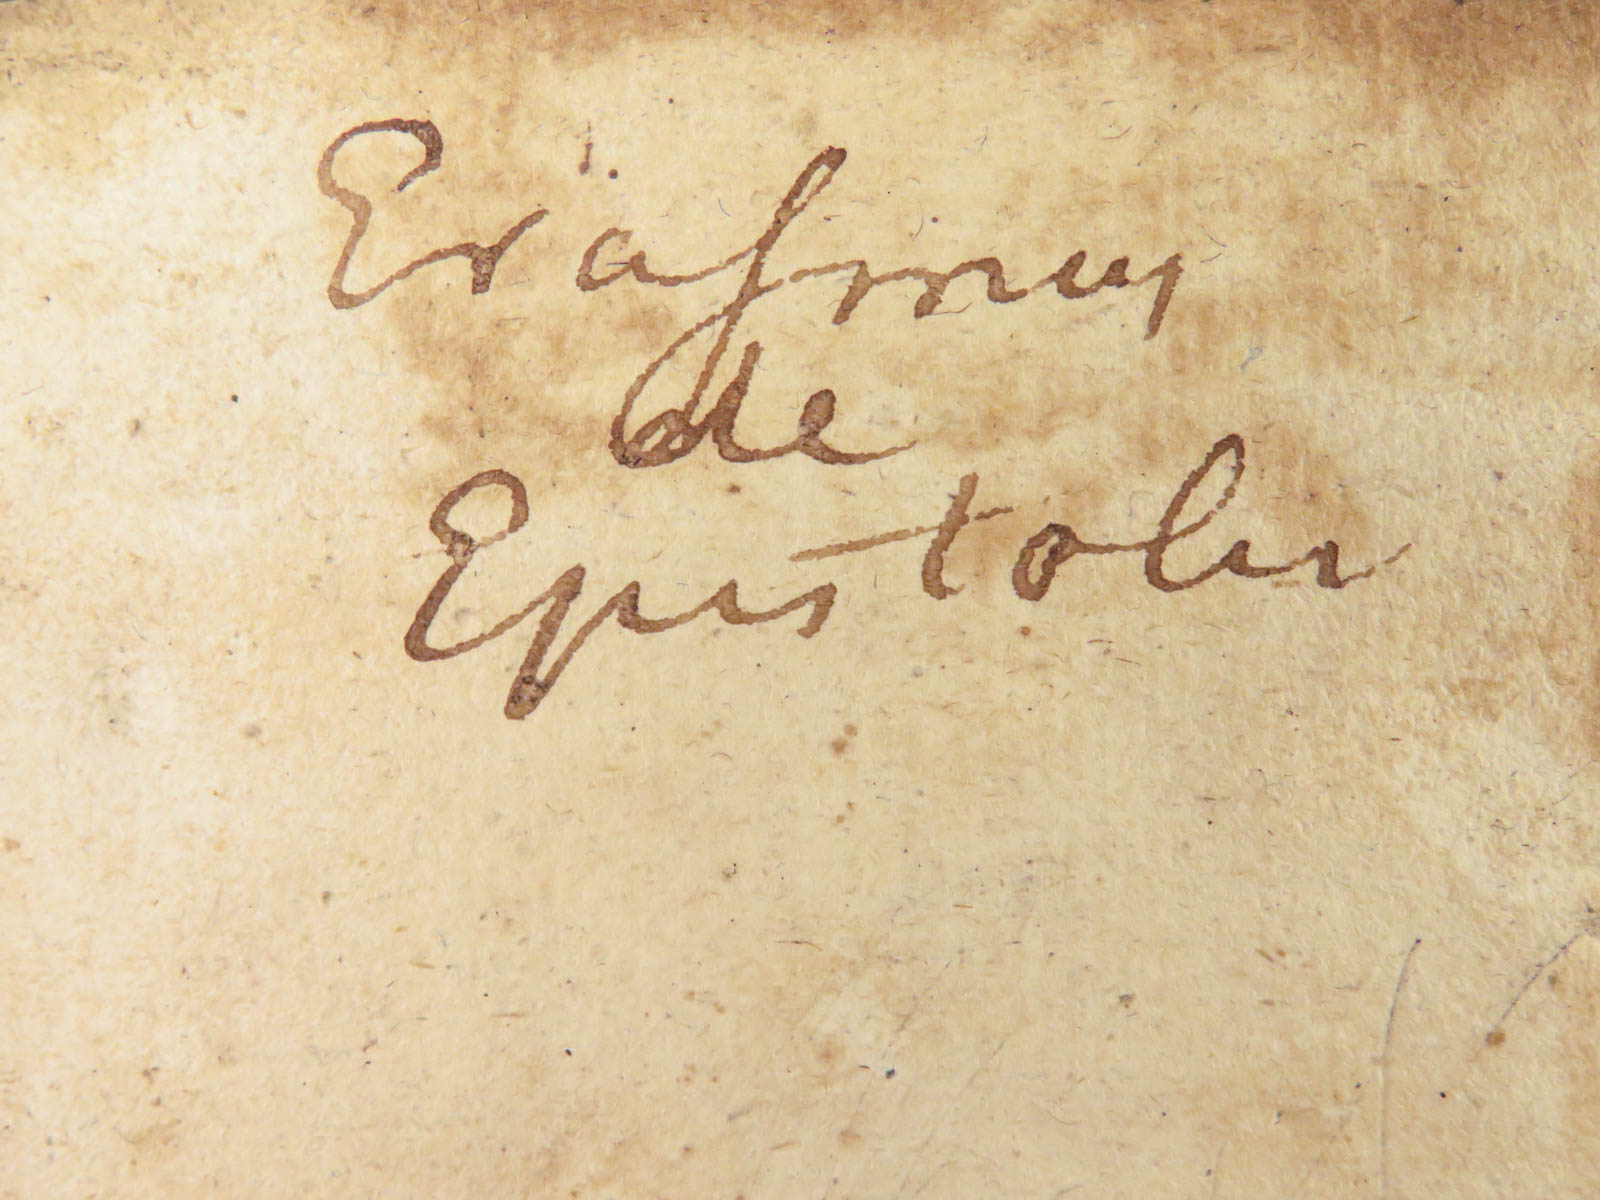 Erasmus
de
Epistolis